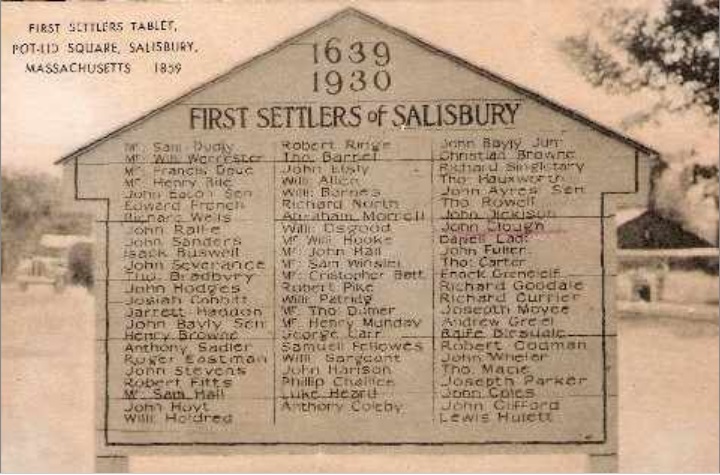 FIRST SETTLERS TABLET,
POT-LID SQUARE, SALISBURY,
MASSACHUSETTS 1859
1639
1930
FIRST SETTLERS of SALISBURY
Mr. Sam Dudly
Mr. Will Worcester
Mr. Francis Doue
Mr. Henry Bile
John Eaton Sen
Edward French
Richard Wells
John Ralfe
John Sanders
Isack Buswell
John Severance
Tho. Bradbury
John Hodges
Josiah Cobbitt
Jarrett Haddon
John Bayly Sen
Henry Browne
Anthony Sadler
Roger Eastman
John Stevens
Robert Fitts
Mr. Sam Hall
John Hoyt
Will Holdred
Robert Ringe
Tho. Barnet
John Elsly
Will: Allen
Will: Barnes
Richard North
Abraham Morrell
Will: Osgood
Mr. Will Hooke
Mr. John Hall
Mr. Sam Winsley
Mr. Cristopher Batt
Robert Pike
Will: Patridg
Mr. Tho. Dumer
Mr. Henry Munday
George Carr
Samuell Fellowes
Will: Sargeant
John Harison
Phillip Challice
Luke Heard
Anthony Coleby
John Bayly Jun:
Christian Browne
Richard Singletary
Tho: Hauxworth
John Ayres Sen
Tho: Rowell
John Dickison
John Clough
Daniell Lad:
John Fuller
Tho: Carter
Enock Greneleif
Richard Goodale
Richard Currier
Joseph Moyce
Andrew Greel
Ralfe Blesdale
Robert Codman
John Wheler
Tho: Macie
Joseph Parker
John Coles
John Clifford
Lewis Hulett